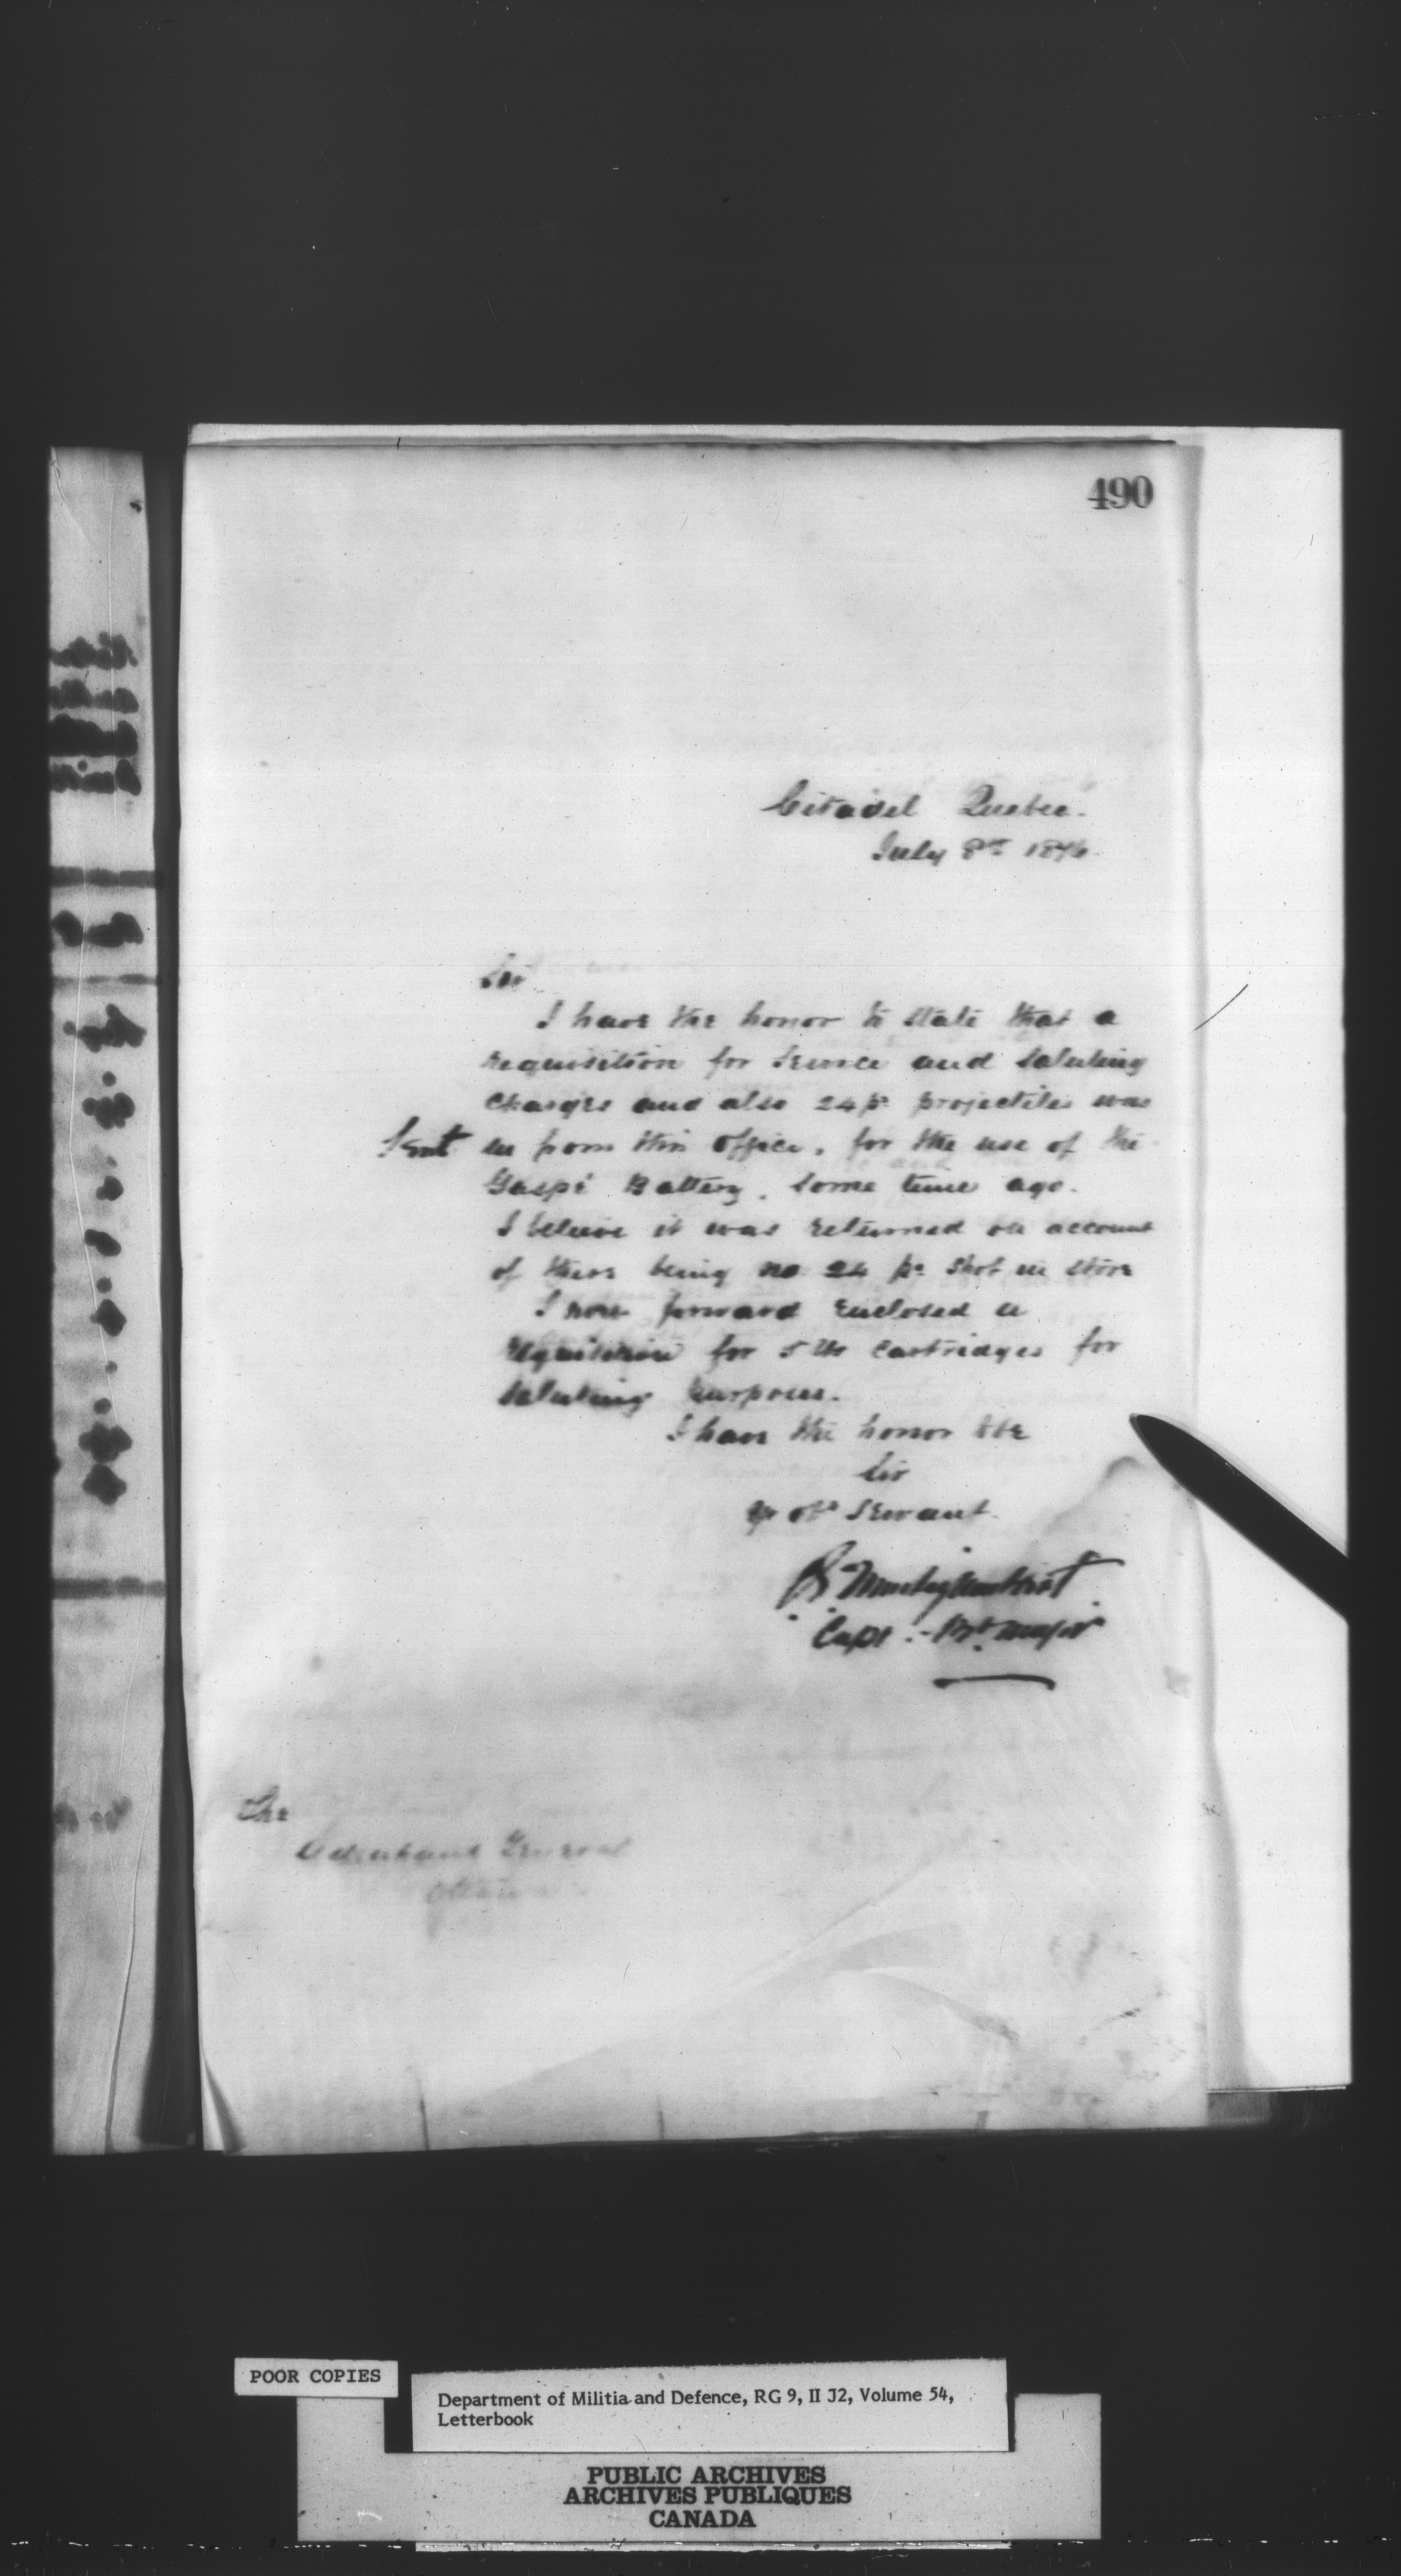 490
Citadel Quebec.
July 8th 1876.
Sir
I have the honor to state that a
requisition for Service and Saluting
Charges and also 24 pr projectiles was
Sent in from this Office, for the use of the
Gaspé Battery, some time ago.
I believe it was returned on account
of there being no 24 pr Shot in store
I now forward enclosed a
requisition for 5 lb cartridges for
Saluting purposes.
I have the honor to be
Sir
Yr obt Servant
Capt. Bt. Major
The
Adjutant General
Ottawa
POOR COPIES
Department of Militia and Defence, RG 9, II J2, Volume 54,
Letterbook
PUBLIC ARCHIVES
ARCHIVES PUBLIQUES
CANADA